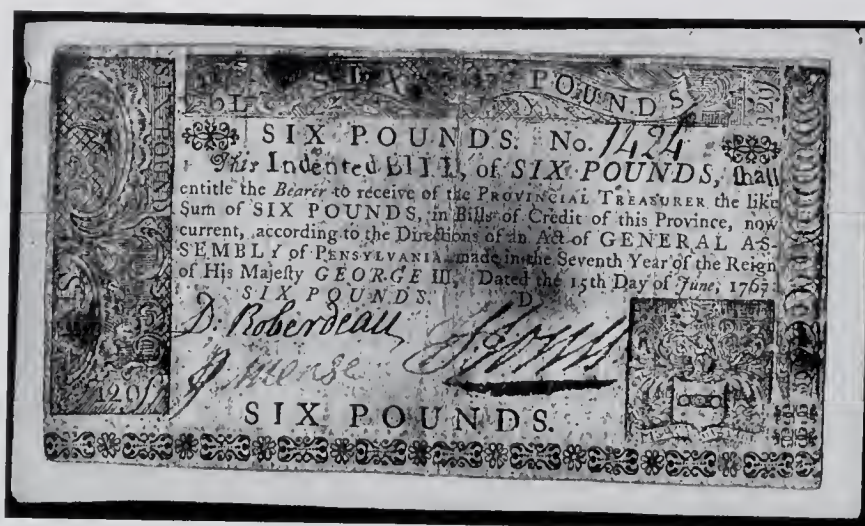 SIX POUNDS
SIX POUNDS
120ſ
SIX POUNDS. No. 1424
This Indented BILL, of SIX POUNDS, ſhall
entitle the Bearer to receive of the PROVINCIAL TREASURER the like
Sum of SIX POUNDS, in Bills of Credit of this Province, now
current, according to the Directions of an Act of GENERAL AS-
SEMBLY of PENSYLVANIA, made in the Seventh Year of the Reign
of His Majeſty GEORGE III, Dated the 15th Day of June, 1767.
SIX POUNDS. D
D. Roberdeau
120ſ
SIX POUNDS.